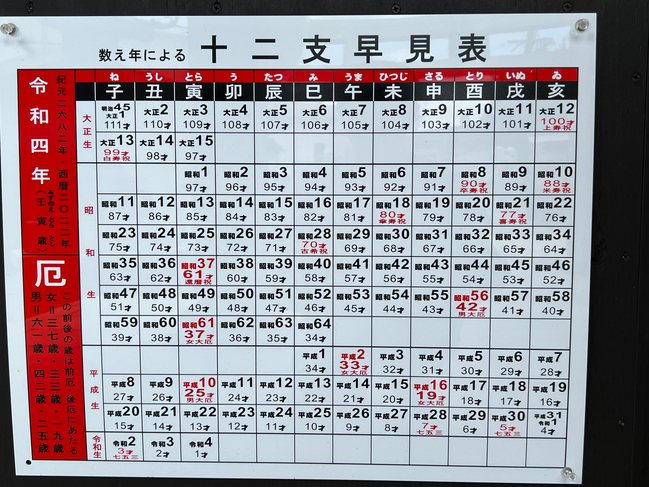 数え年による 十二支早見表
令和四年
紀元二六八二年・西暦二〇二二年
(壬寅歳)
みずのえ とら どし
厄
この前後の歳は前厄、後厄にあたる
女=三七歳・三三歳・一九歳
男=六一歳・四二歳・二五歳
ね うし とら う たつ み うま ひつじ さる とり いぬ ゐ
子 丑 寅 卯 辰 巳 午 未 申 酉 戌 亥
大正生
明治45 大正1 大正2 大正3 大正4 大正5 大正6 大正7 大正8 大正9 大正10 大正11 大正12
111才 110才 109才 108才 107才 106才 105才 104才 103才 102才 101才 100才 上寿祝
大正13 大正14 大正15
99才 白寿祝 98才 97才
昭和生
昭和1 昭和2 昭和3 昭和4 昭和5 昭和6 昭和7 昭和8 昭和9 昭和10
97才 96才 95才 94才 93才 92才 91才 90才 卒寿祝 89才 88才 米寿祝
昭和11 昭和12 昭和13 昭和14 昭和15 昭和16 昭和17 昭和18 昭和19 昭和20 昭和21 昭和22
87才 86才 85才 84才 83才 82才 81才 80才 傘寿祝 79才 78才 77才 喜寿祝 76才
昭和23 昭和24 昭和25 昭和26 昭和27 昭和28 昭和29 昭和30 昭和31 昭和32 昭和33 昭和34
75才 74才 73才 72才 71才 70才 古希祝 69才 68才 67才 66才 65才 64才
昭和35 昭和36 昭和37 昭和38 昭和39 昭和40 昭和41 昭和42 昭和43 昭和44 昭和45 昭和46
63才 62才 61才 還暦祝 60才 59才 58才 57才 56才 55才 54才 53才 52才
昭和47 昭和48 昭和49 昭和50 昭和51 昭和52 昭和53 昭和54 昭和55 昭和56 昭和57 昭和58
51才 50才 49才 48才 47才 46才 45才 44才 43才 42才 男大厄 41才 40才
昭和59 昭和60 昭和61 昭和62 昭和63 昭和64
39才 38才 37才 女大厄 36才 35才 34才
平成生
平成1 平成2 平成3 平成4 平成5 平成6 平成7
34才 33才 女大厄 32才 31才 30才 29才 28才
平成8 平成9 平成10 平成11 平成12 平成13 平成14 平成15 平成16 平成17 平成18 平成19
27才 26才 25才 男大厄 24才 23才 22才 21才 20才 19才 女大厄 18才 17才 16才
平成20 平成21 平成22 平成23 平成24 平成25 平成26 平成27 平成28 平成29 平成30 平成31 令和1
15才 14才 13才 12才 11才 10才 9才 8才 7才 七五三 6才 5才 七五三 4才
令和生
令和2 令和3 令和4
3才 七五三 2才 1才